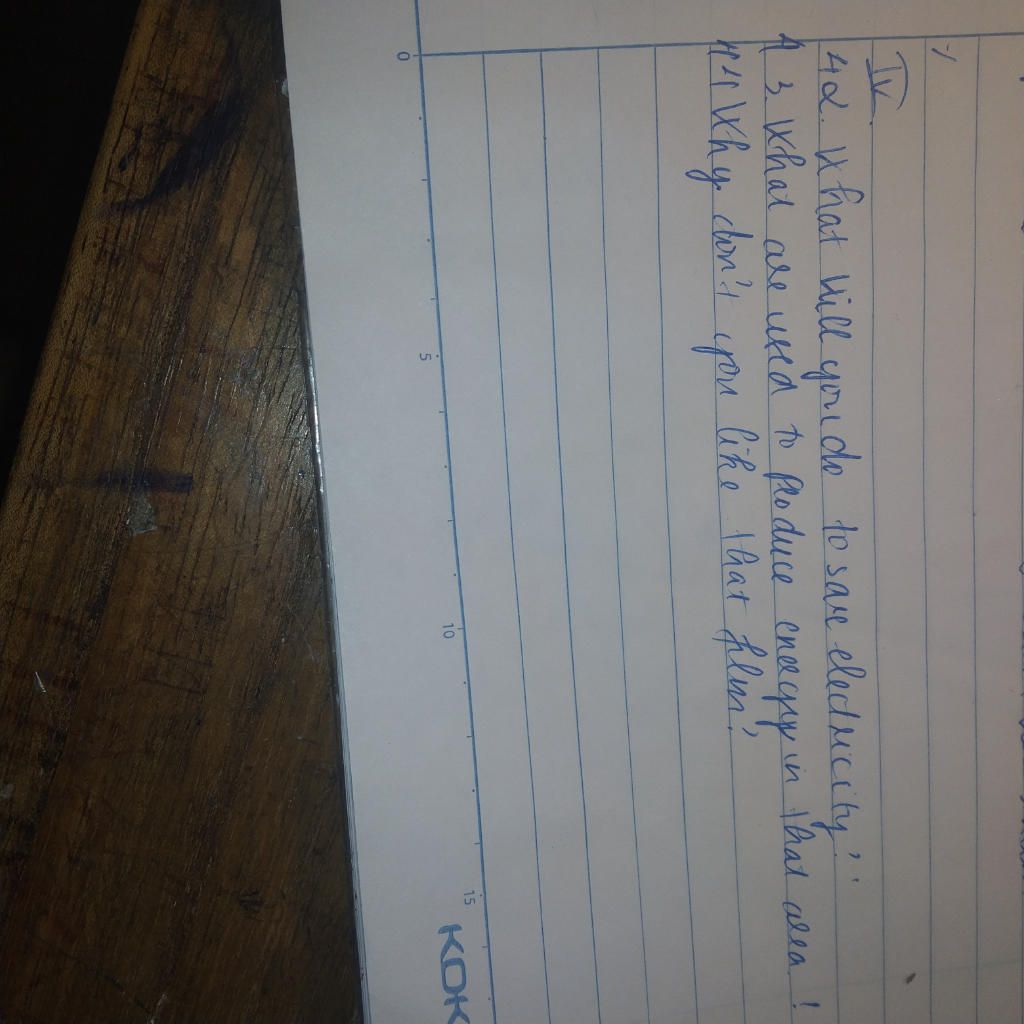 IV.
42. What will you do to save electricity?
43. What are used to produce energy in that area?
44 Why don't you like that film?
0 5 10 15
KOK